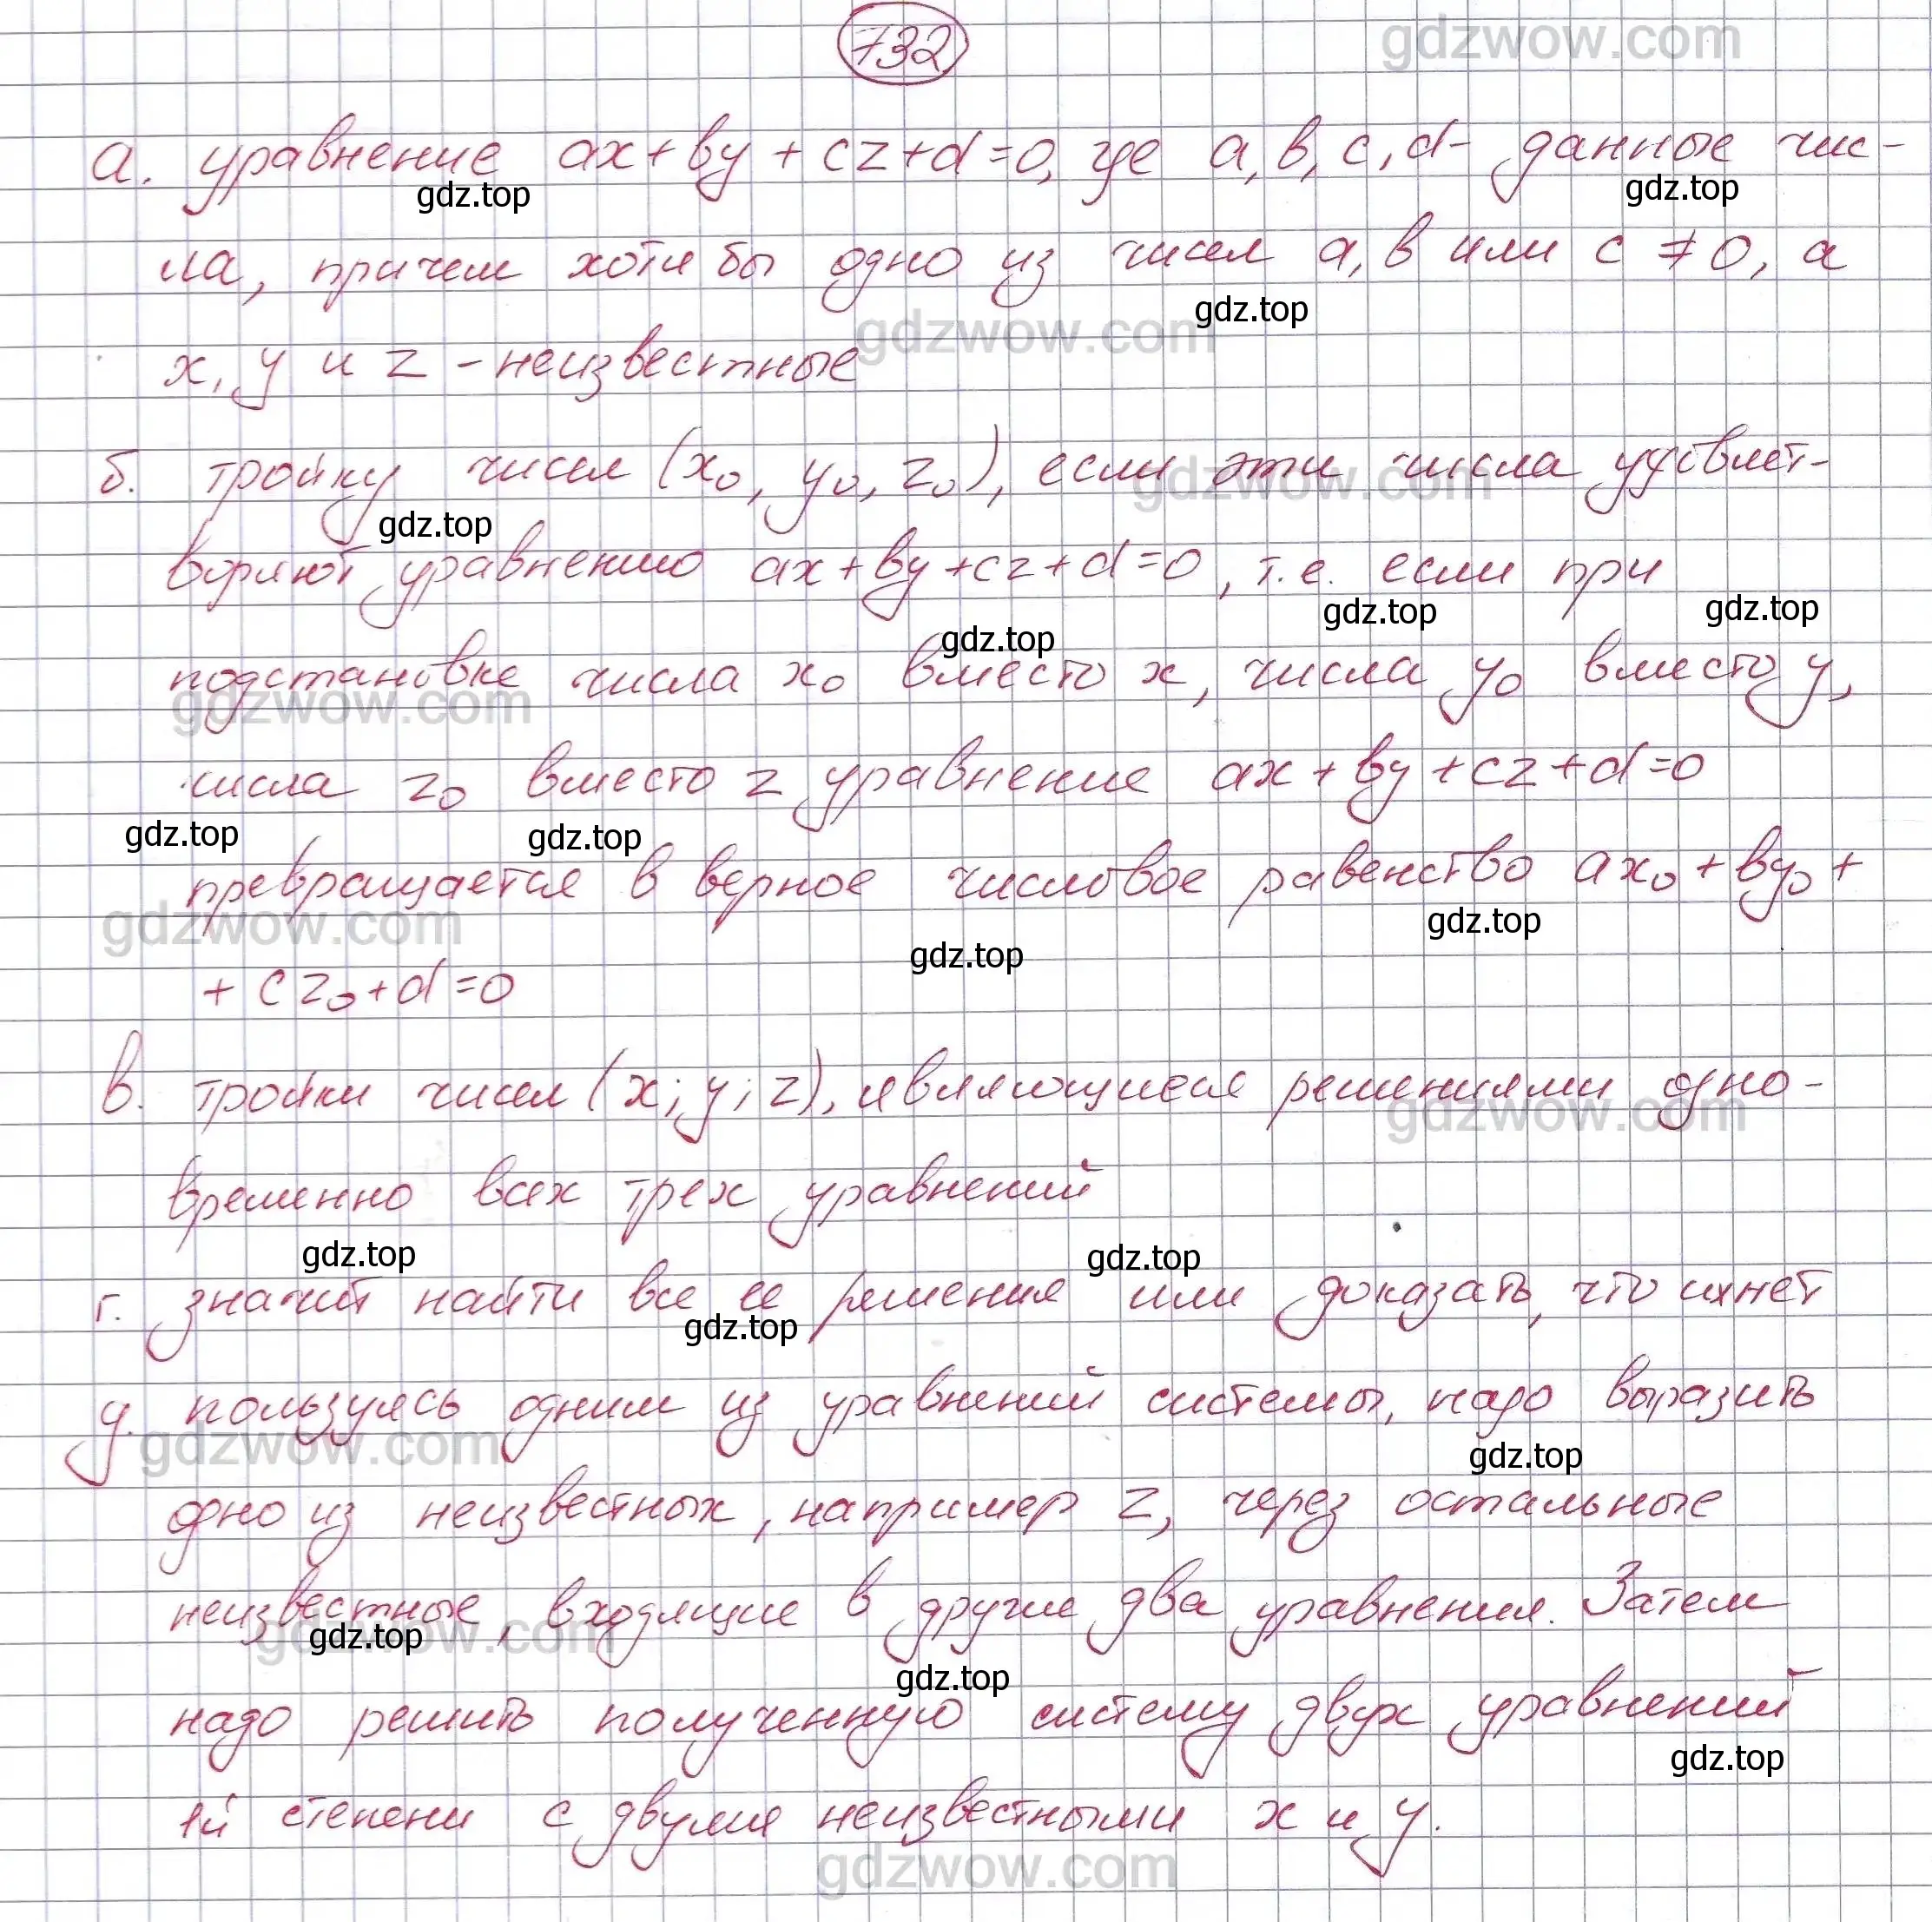 732
gdzwow.com
а. уравнение ax+by+cz+d=0, где a, b, c, d- данные чис-
gdz.top gdz.top
ла, причем хотя бы одно из чисел a, b или c ≠ 0, а
gdzwow.com gdz.top
x, y и z - неизвестные
б. тройку чисел (x₀, y₀, z₀), если эти числа удовлет-
gdz.top gdzwow.com
воряют уравнению ax+by+cz+d=0, т.е. если при
gdz.top gdz.top gdz.top
подстановке числа x₀ вместо x, числа y₀ вместо y,
gdzwow.com
числа z₀ вместо z уравнение ax+by+cz+d=0
gdz.top gdz.top
превращается в верное числовое равенство ax₀+by₀+
gdzwow.com gdz.top gdz.top
+ cz₀+d=0
в. тройки чисел (x; y; z), являющиеся решениями одно-
gdzwow.com
временно всех трех уравнений
gdz.top gdz.top
г. значит найти все ее решения или доказать, что их нет
gdz.top
д. пользуясь одним из уравнений системы, надо выразить
gdzwow.com gdz.top
одно из неизвестных, например z, через остальные
неизвестные, входящие в другие два уравнения. Затем
gdzwow.com gdz.top gdz.top
надо решить полученную систему двух уравнений
gdz.top
1й степени с двумя неизвестными x и y.
gdzwow.com